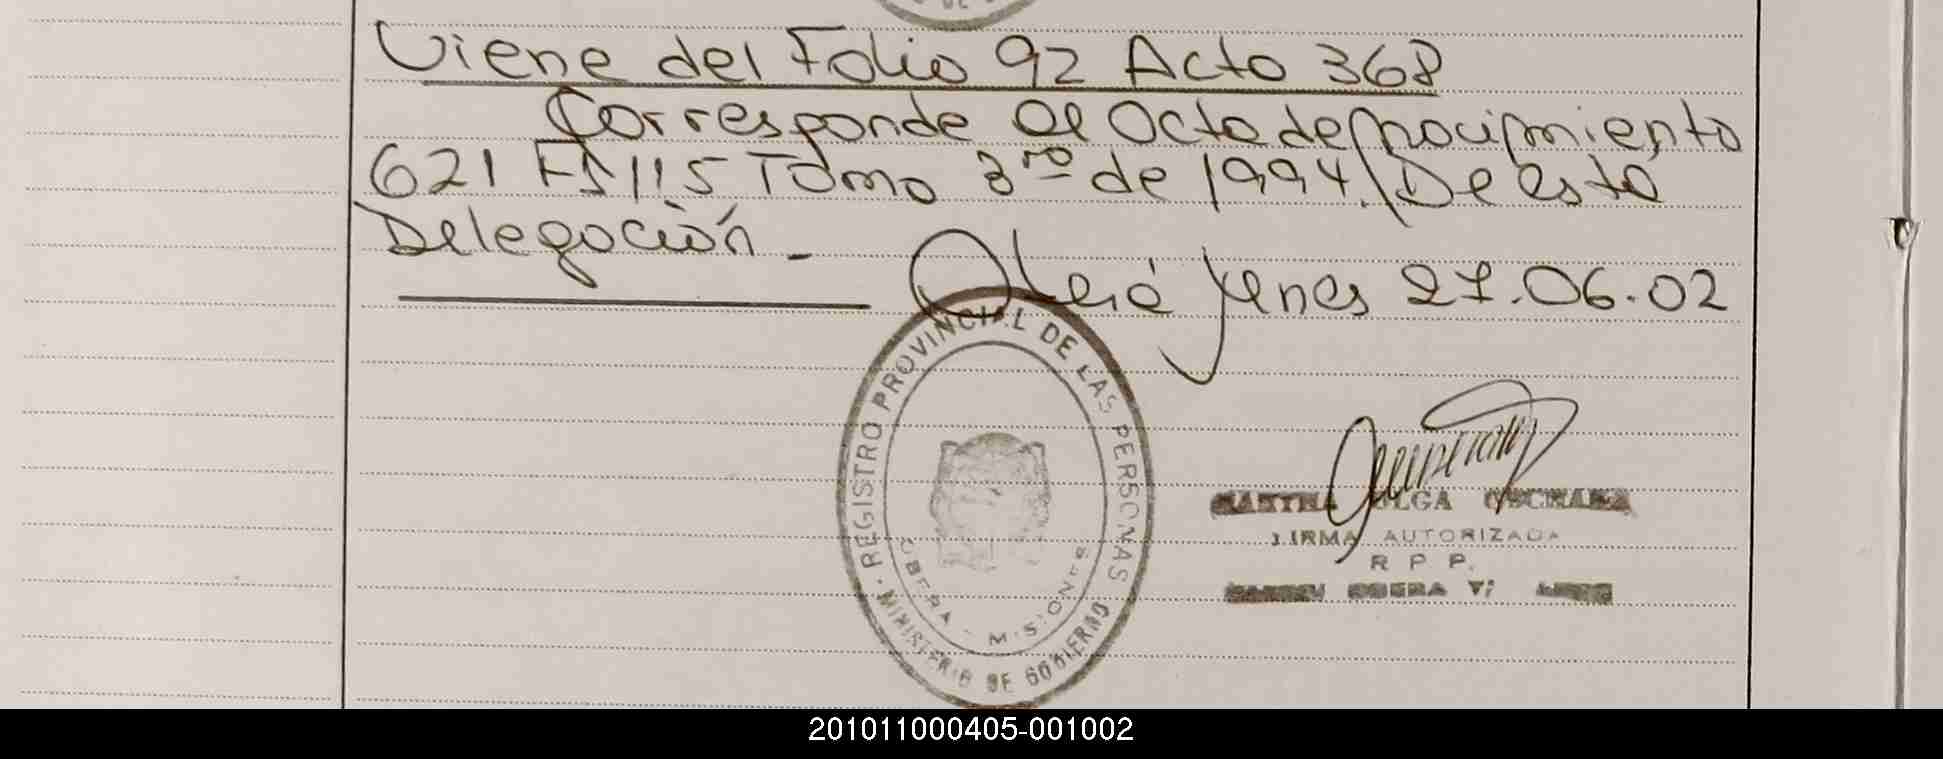 Viene del Folio 92 Acta 368
Corresponde al acta de nacimiento
621 Fs 115 Tomo 3ro de 1994. De esta
Delegación -
27.06.02
REGISTRO PROVINCIAL DE LAS PERSONAS
MINISTERIO DE GOBIERNO
OBERA - MISIONES
MARTHA OLGA
FIRMA AUTORIZADA
R P P.
OBERA
201011000405-001002